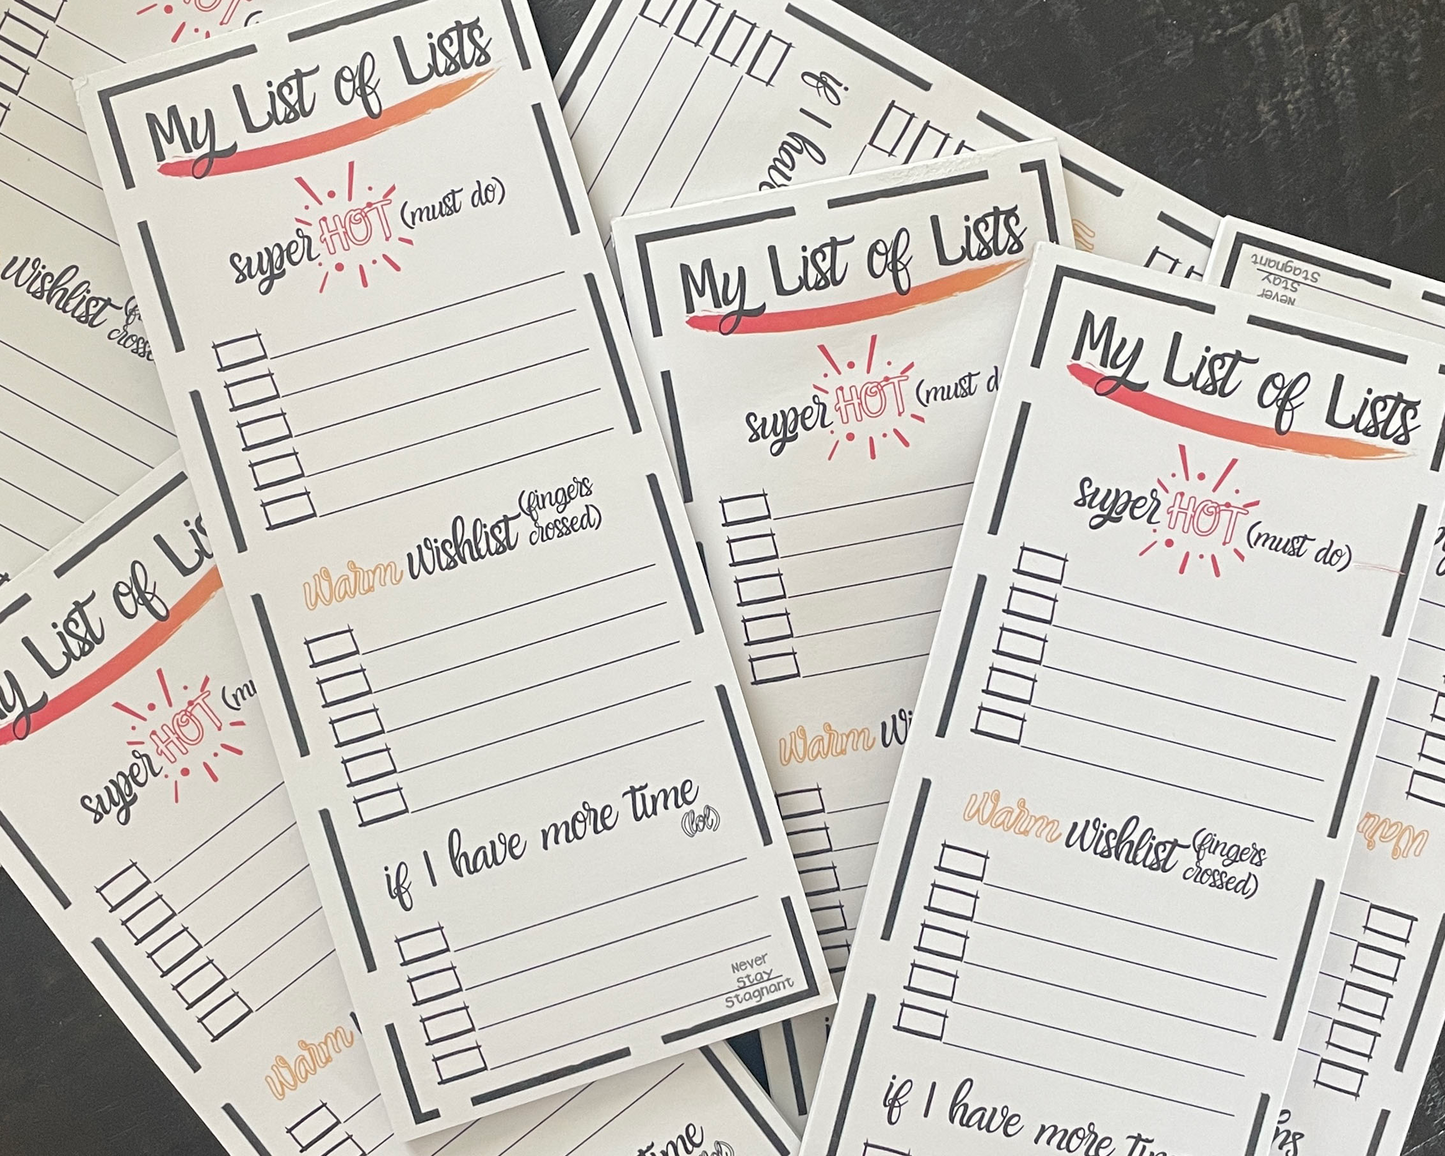 My List of Lists
super HOT (must do)
Warm Wishlist (fingers crossed)
if I have more time (lol)
Never
Stay
Stagnant
My List of Lists
super HOT (must d
Warm Wi
My List of Lists
super HOT (must do)
Warm Wishlist (fingers crossed)
if I have more
y List of Lis
super HOT (mu
Warm
time
(lol)
Wishlist
if I hav
Never
Stay
Stagnant
Warm